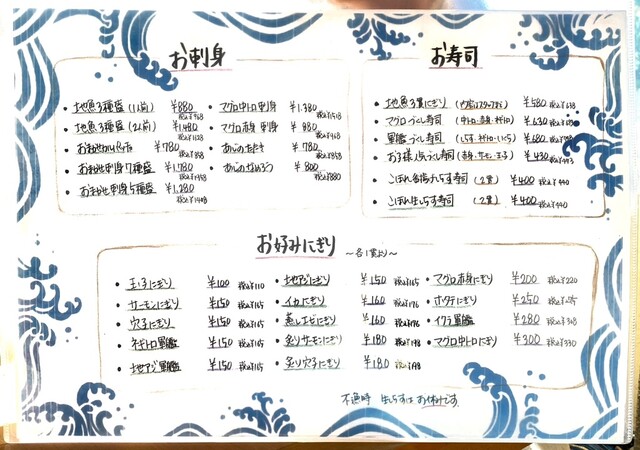 お刺身
地魚3種盛(1人前) ¥880 税込¥968
地魚3種盛(2人前) ¥1,480
¥780
おまかせ刺身7種盛 ¥1,780
おまかせ刺身5種盛 ¥1,280 税込¥1408
マグロ中トロ刺身 ¥1,380 税込¥1518
マグロ赤身 刺身 ¥880 税込¥968
あじのたたき ¥780 税込¥858
あじのなめろう ¥800 税込¥880
お寿司
地魚3貫にぎり ¥580 税込¥638
マグロづくし寿司 (中トロ・赤身・ネギトロ) ¥630 税込¥693
軍艦づくし寿司 (しらす・ネギトロ・いくら) ¥680
お子様にぎり寿司 (赤身・サーモン・玉子) ¥430 税込¥473
こぼれ釜揚げしらす寿司 (2貫) ¥400 税込¥440
こぼれ生しらす寿司 (2貫) ¥400 税込¥440
お好みにぎり ～各1貫より～
玉子にぎり ¥100 税込¥110
サーモンにぎり ¥150 税込¥165
穴子にぎり ¥150 税込¥165
ネギトロ軍艦 ¥150 税込¥165
地アジ軍艦 ¥150 税込¥165
地アジにぎり ¥150 税込¥165
イカにぎり ¥160 税込¥176
蒸しエビにぎり ¥160 税込¥176
炙りサーモンにぎり ¥180 税込¥198
炙り穴子にぎり ¥180 税込¥198
マグロ赤身にぎり ¥200 税込¥220
ホタテにぎり ¥250 税込¥275
イクラ軍艦 ¥280 税込¥308
マグロ中トロにぎり ¥300 税込¥330
不漁時 生しらすはお休みです。